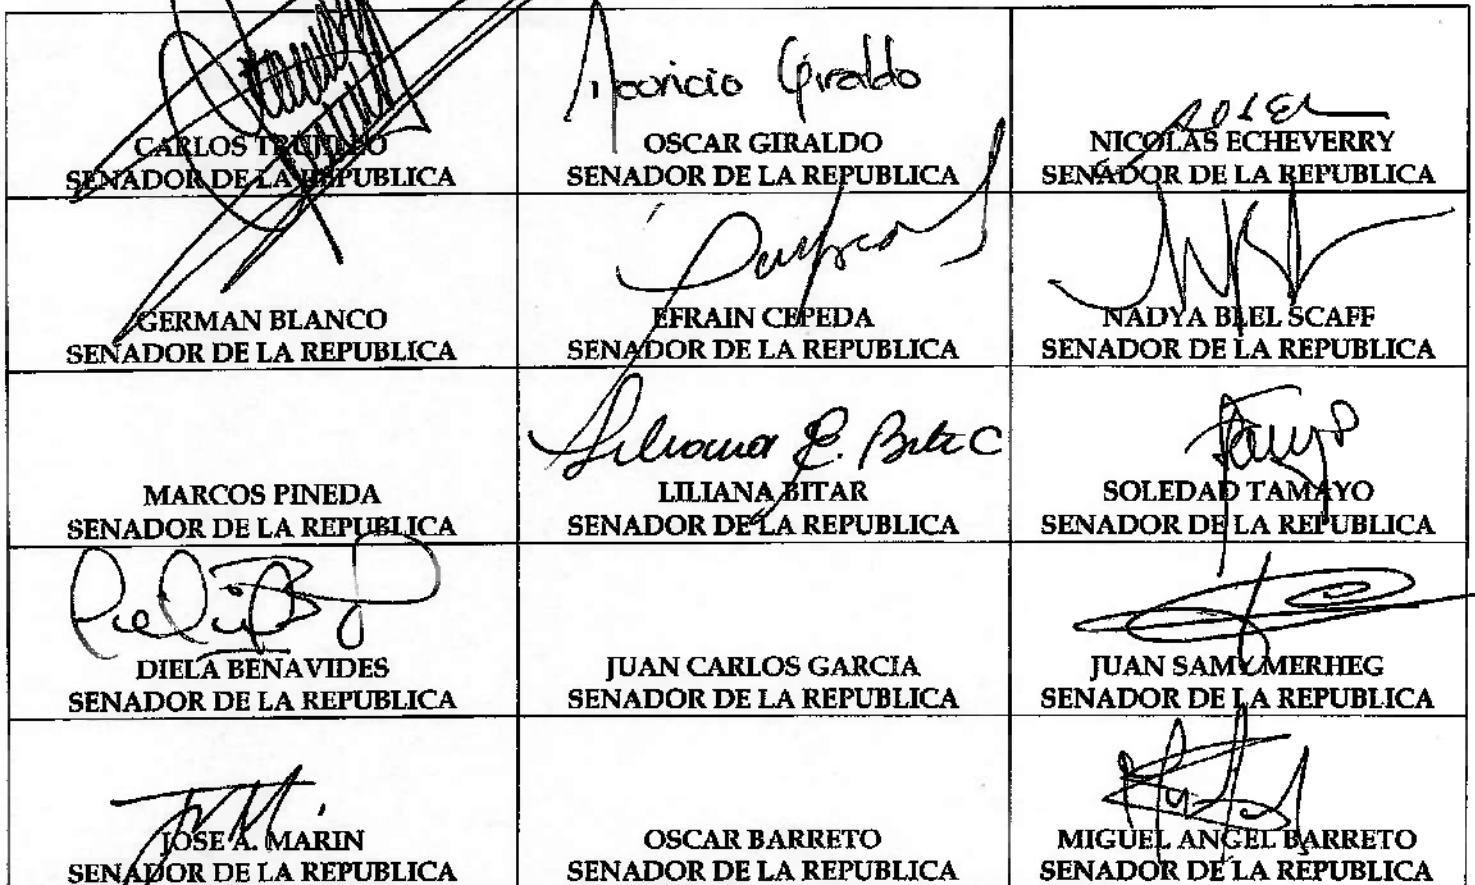 Mauricio Giraldo
CARLOS TRUJILLO
SENADOR DE LA REPUBLICA
OSCAR GIRALDO
SENADOR DE LA REPUBLICA
NICOLAS ECHEVERRY
SENADOR DE LA REPUBLICA
GERMAN BLANCO
SENADOR DE LA REPUBLICA
EFRAIN CEPEDA
SENADOR DE LA REPUBLICA
NADYA BLEL SCAFF
SENADOR DE LA REPUBLICA
Liliana E. Bitar C
Tamayo
MARCOS PINEDA
SENADOR DE LA REPUBLICA
LILIANA BITAR
SENADOR DE LA REPUBLICA
SOLEDAD TAMAYO
SENADOR DE LA REPUBLICA
DIELA BENAVIDES
SENADOR DE LA REPUBLICA
JUAN CARLOS GARCIA
SENADOR DE LA REPUBLICA
JUAN SAMY MERHEG
SENADOR DE LA REPUBLICA
JOSE A. MARIN
SENADOR DE LA REPUBLICA
OSCAR BARRETO
SENADOR DE LA REPUBLICA
MIGUEL ANGEL BARRETO
SENADOR DE LA REPUBLICA